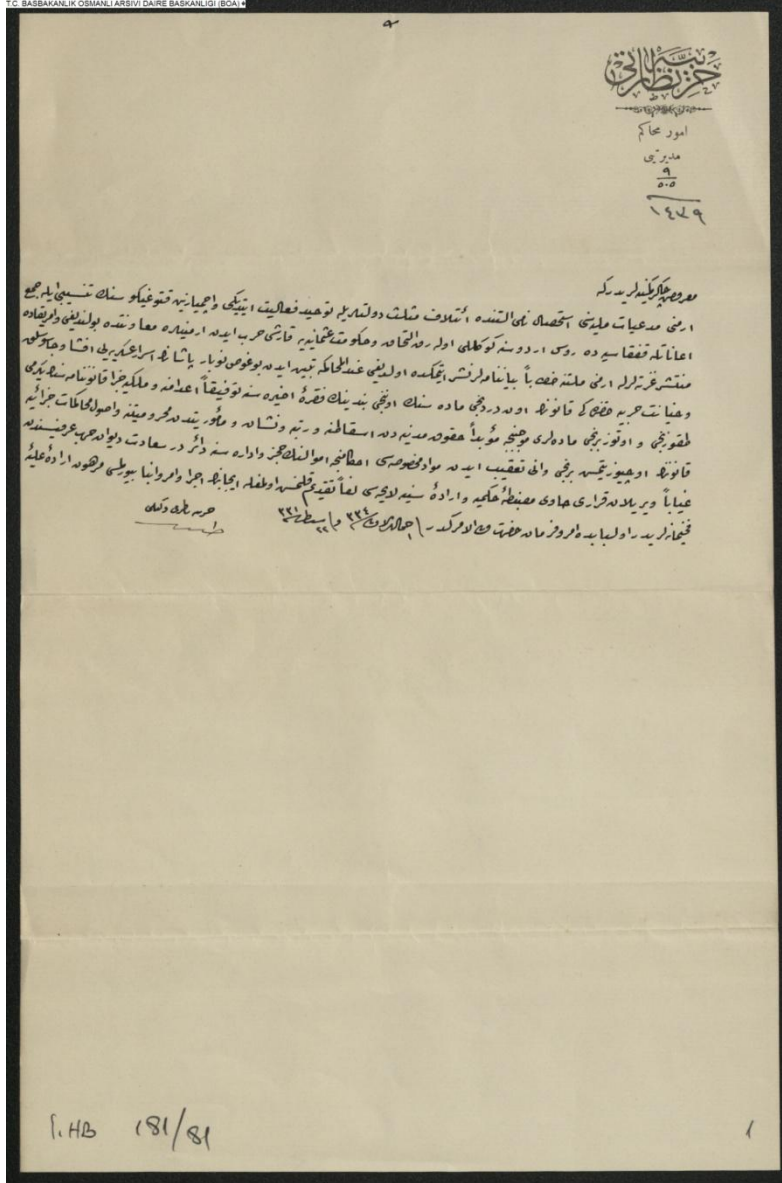 T.C. BASBAKANLIK OSMANLI ARSIVI DAIRE BASKANLIGI (BOA)
حربيه نظارتی
امور محاكم
مديريتی
٩
٥٠٥
١٤٣٩
معروض چاكر كمينه‌لريدر كه
ارمنی مدعيات مليه‌سی استحصال املی التنده ائتلاف مثلث دولتلريله توحيد فعاليت ايتديكی واچميازين قتوغيقوسنك تنسيبی ايله جمع
اعاناتله قفقاسيه‌ده روس اردوسنه كوكللی اوله‌رق التحاق وحكومت عثمانيه‌يه قارشی حرب ايدن ارمنيلره معاونتده بولنديغی
منتشر غزته‌لرله ارمنی ملتنه خطاباً بياننامه‌لر نشر ايتمكده اولديغی عند المحاكمه تبين ايدن بوغوص نوبار پاشانك اسرار عسكريه‌يی افشا
وخيانت حربيه حقنده‌كی قانونك اون دردنجی ماده‌سنك اوچنجی بندينك فقرۀ اخيره‌سنه توفيقاً اعدامنه وملكيه جزا قانوننامه‌سنك يكرمی
طقوزنجی واوتوز برنجی ماده‌لری موجبنجه مؤبداً حقوق مدنيه‌دن اسقاطنه ورتبه ونشان ومأموريتدن محروميتنه واصول محاكمات جزائيه
قانوننك اوچيوز يتمش برنجی وانی تعقيب ايدن مواد مخصوصه‌سی احكامنجه اموالنك حجز واداره‌سنه دائر در سعادت ديوان حرب عرفيسندن
غياباً ويريلان قراری حاوی مضبطۀ حكميه وارادۀ سنيه لايحه‌سی لفاً تقديم قلنمش اولمغله ايجابنك اجرا وامر وانبا بيورلمسی مرهون ارادۀ عليۀ
فخيمانه‌لريدر اولبابده امر وفرمان حضرت من له الامركدر
حربيه ناظری وكيلی
İ.HB 181/81
1